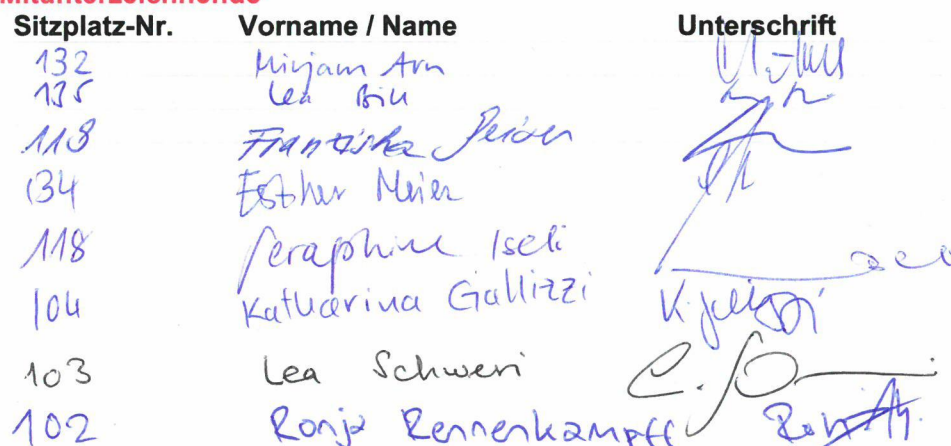 Mitunterzeichnende
Sitzplatz-Nr. Vorname / Name Unterschrift
132 Mirjam Arn
135 Lea Bill
118 Franziska
134 Esther Meier
118 Seraphine Iseli
104 Katharina Gallizzi K. Gallizzi
103 Lea Schweri
102 Ronja Rennenkampff